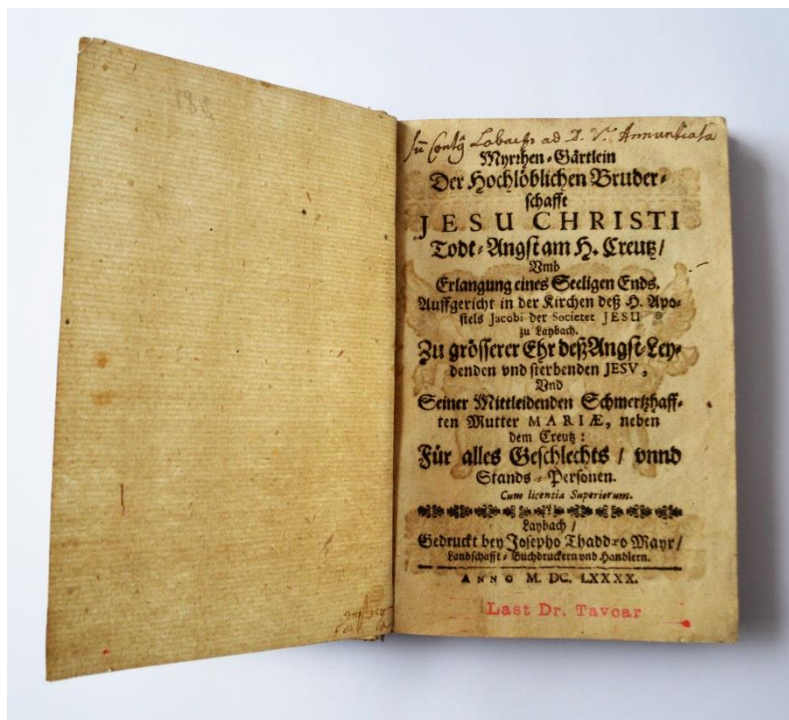 198
Labach ad B. V. Annunciata
Myrthen-Gärtlein
Der Hochlöblichen Bruder-
schafft
JESU CHRISTI
Todt-Angst am H. Creutz/
Vmb
Erlangung eines Seeligen Ends.
Auffgericht in der Kirchen deß H. Apo-
stels Jacobi der Societet JESU
zu Laybach.
Zu grösserer Ehr deß Angst-Ley-
denden vnd sterbenden JESV,
Vnd
Seiner Mittleidenden Schmertzhaff-
ten Mutter MARIÆ, neben
dem Creutz:
Für alles Geschlechts / vnnd
Stands-Personen.
Cum licentia Superiorum.
Laybach /
Gedruckt bey Josepho Thaddæo Mayr/
Landschafft-Buchdruckern vnd Handlern.
ANNO M. DC. LXXXX.
Last Dr. Tavcar